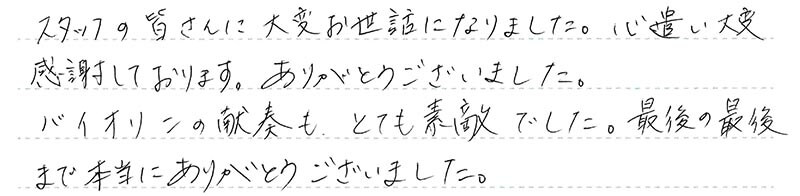 スタッフの皆さんに大変お世話になりました。心遣い大変
感謝しております。ありがとうございました。
バイオリンの献奏も、とても素敵でした。最後の最後
まで本当にありがとうございました。